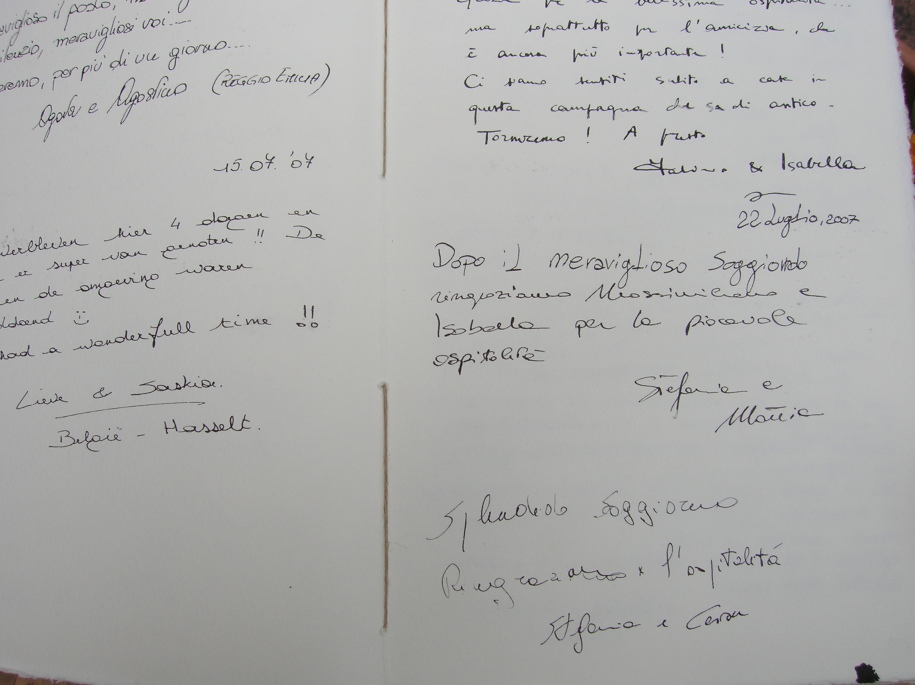 viglioso il posto,
silenzio, meravigliosi voi....
eremo, per più di un giorno....
Agata e Agostino (REGGIO EMILIA)
15.07.'07
verbleven hier 4 dagen en
er super van genoten !! De
en de omgeving waren
had a wonderfull time !!
Lieve & Saskia.
België - Hasselt.
ospitalità...
ma soprattutto per l'amicizia, che
è ancora più importante !
Ci siamo sentiti subito a casa in
questa campagna che sa di antico.
Torneremo ! A presto
& Isabella
22 Luglio, 2007
Dopo il meraviglioso Soggiorno
ringraziamo Massimiliano e
Isabella per la piacevole
ospitalità
Stefania e
Mattia
Splendido Soggiorno
Ringraziamo x l'ospitalità
Stefania e